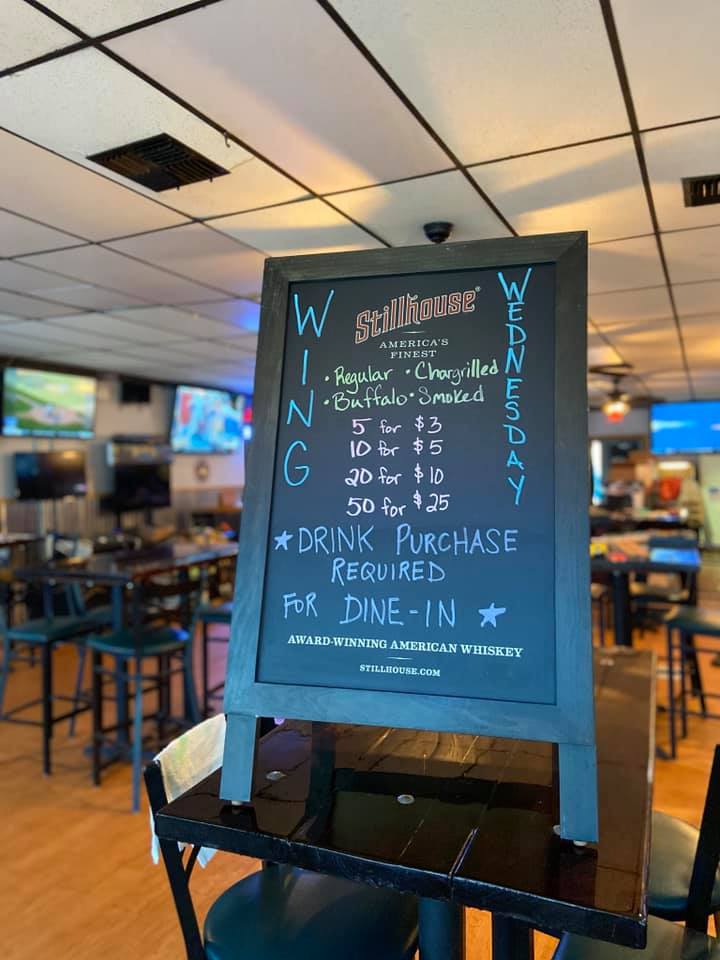 WING
WEDNESDAY
Stillhouse®
AMERICA'S
FINEST
• Regular • Chargrilled
• Buffalo • Smoked
5 for $3
10 for $5
20 for $10
50 for $25
★ DRINK PURCHASE
REQUIRED
FOR DINE-IN ★
AWARD-WINNING AMERICAN WHISKEY
STILLHOUSE.COM